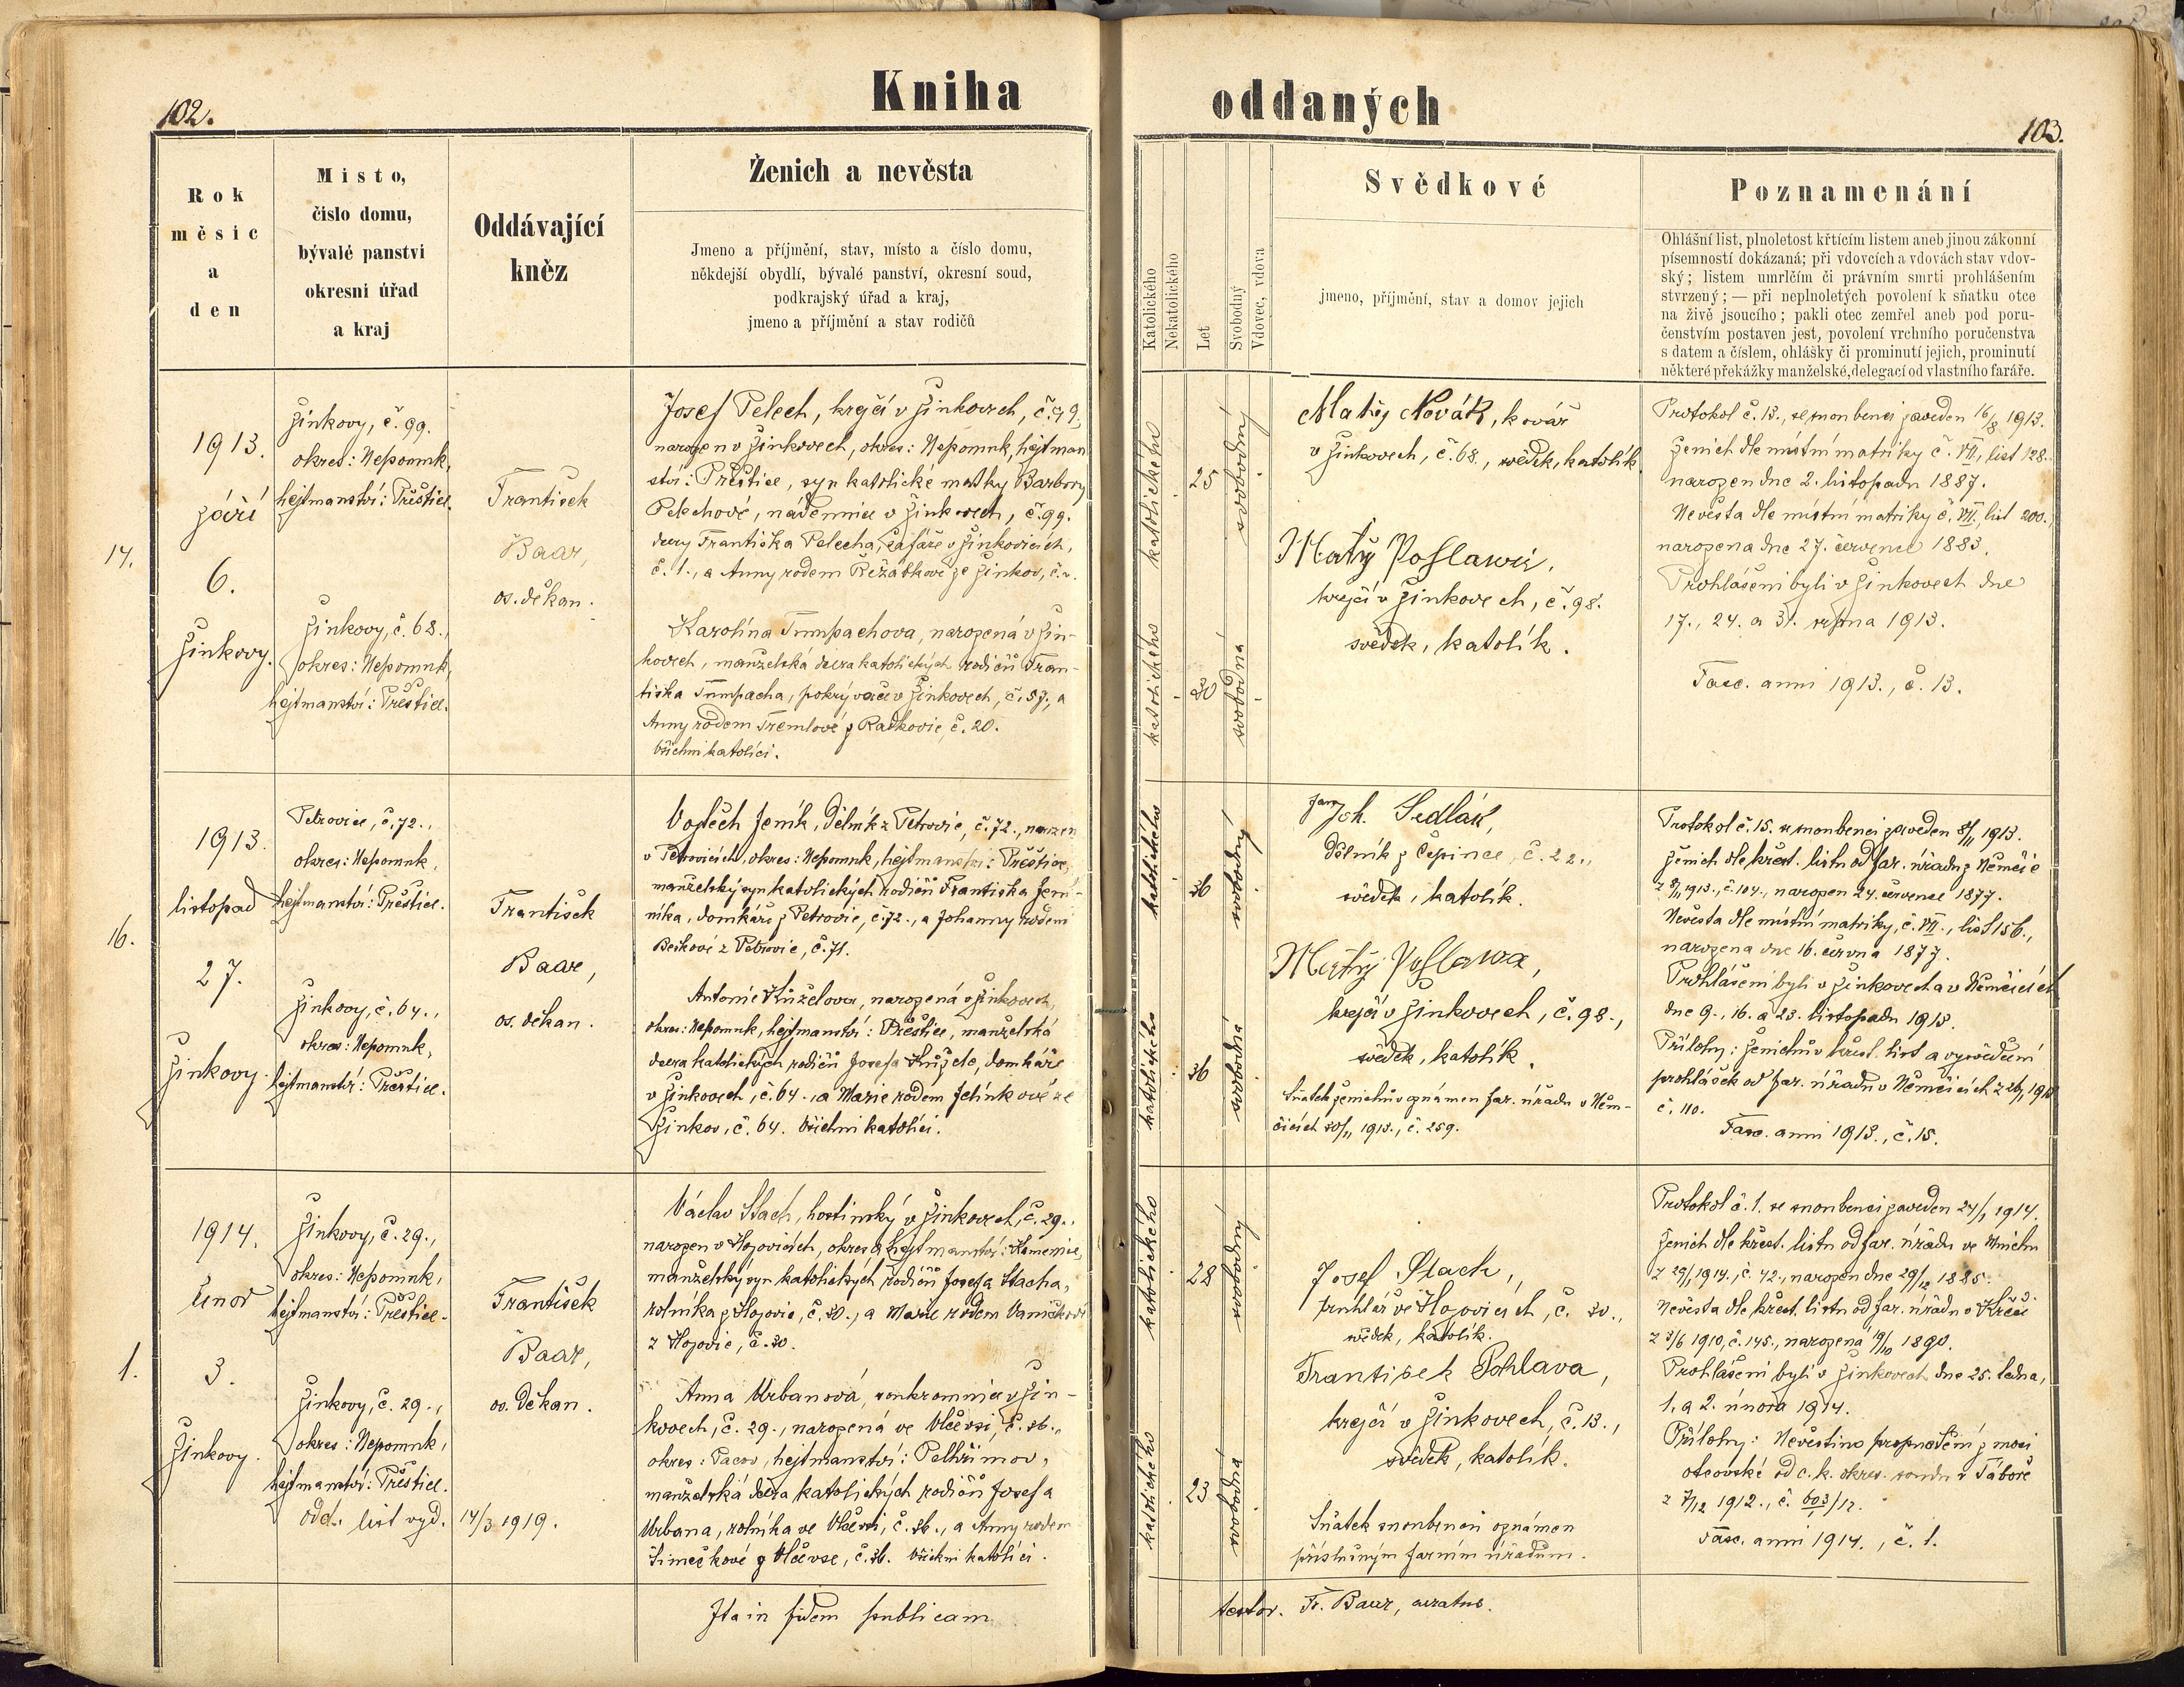 102.
Kniha
oddaných
103.
Rok
měsíc
a
den
Místo,
číslo domu,
bývalé panství
okresní úřad
a kraj
Oddávající
kněz
Ženich a nevěsta
Jmeno a příjmění, stav, místo a číslo domu,
někdejší obydlí, bývalé panství, okresní soud,
podkrajský úřad a kraj,
jmeno a příjmění a stav rodičů
Katolického
Nekatolického
Let
Svobodný
Vdovec, vdova
Svědkové
jmeno, příjmění, stav a domov jejich
Poznamenání
Ohlášní list, plnoletost křtícím listem aneb jinou zákonní
písemností dokázaná; při vdovcích a vdovách stav vdov-
ský; listem umrlčím či právním smrti prohlášením
stvrzený; — při neplnoletých povolení k sňatku otce
na živě jsoucího; pakli otec zemřel aneb pod poru-
čenstvím postaven jest, povolení vrchního poručenstva
s datem a číslem, ohlášky či prominutí jejich, prominutí
některé překážky manželské, delegací od vlastního faráře.
14.
1913.
září
6.
Žinkovy.
Žinkovy, č. 99.
okres: Nepomuk,
hejtmanství: Přeštice.
Žinkovy, č. 68.,
okres: Nepomuk,
hejtmanství: Přeštice.
František
Baar,
os. děkan.
Josef Pelech, krejčí v Žinkovech, č. 99,
narozen v Žinkovech, okres: Nepomuk, hejtman
ství: Přeštice, syn katolické matky Barbory
Pelechové, nádennice v Žinkovech, č. 99.
dcery Františka Pelecha, šafáře v Žinkovicích,
č. 1., a Anny rodem Řežábkové ze Žinkov, č.
Karolína Tumpachova, narozená v Žin-
kovech, manželská dcera katolických rodičů Fran-
tiška Tumpacha, pokrývače v Žinkovech, č. 57., a
Anny rodem Tremlové z Radkovic č. 20.
Všichni katolíci.
katolického
25
svobodný
katolického
30
svobodná
Matěj Novák, kovář
v Žinkovech, č. 68., svědek, katolík.
Matěj Pohlawa,
krejčí v Žinkovech, č. 98.
svědek, katolík.
Protokol č. 13., se snoubenci zaveden 16/8 1913.
Ženich dle místní matriky č. VII., list 128.
narozen dne 2. listopadu 1887.
Nevěsta dle místní matriky č. VII., list 200.
narozena dne 27. července 1883.
Prohlášeni byli v Žinkovech dne
17., 24. a 31. srpna 1913.
Fasc. anni 1913., č. 13.
16.
1913.
listopad
27.
Žinkovy.
Petrovice, č. 72.,
okres: Nepomuk,
hejtmanství: Přeštice.
Žinkovy, č. 64.,
okres: Nepomuk,
hejtmanství: Přeštice.
František
Baar,
os. děkan.
Vojtěch Jeník, dělník z Petrovic, č. 72., narozen
v Petrovicích, okres: Nepomuk, hejtmanství: Přeštice,
manželský syn katolických rodičů Františka Jení-
níka, domkáře z Petrovic, č. 72., a Johanny rodem
Beškové z Petrovic, č. 71.
Antonie Kuželova, narozená v Žinkovech,
okres: Nepomuk, hejtmanství: Přeštice, manželská
dcera katolických rodičů Josefa Kužele, domkáře
v Žinkovech, č. 64., a Marie rodem Jelínkové ze
Žinkov, č. 64. Všichni katolíci.
katolického
36
svobodný
katolického
36
svobodná
Joh. Sedlák,
dělník z Čepince, č. 22.,
svědek, katolík.
Matěj Pohlawa,
krejčí v Žinkovech, č. 98.,
svědek, katolík.
Sňatek ženichův oznámen far. úřadu v Něm-
čicích 30/11 1913., č. 259.
Protokol č. 15. se snoubenci zaveden 8/11 1913.
Ženich dle křest. listu od far. úřadu z Němčic
z 8/11 1913., č. 104., narozen 24. července 1877.
Nevěsta dle místní matriky, č. VII., list 156.,
narozena dne 16. června 1877.
Prohlášeni byli v Žinkovech a v Němčicích
dne 9., 16. a 23. listopadu 1913.
Přílohy: ženichův křest. list a vysvědčení
prohlášek od far. úřadu v Němčicích z 26/11 1913
č. 110.
Fasc. anni 1913., č. 15.
1.
1914.
únor
3.
Žinkovy.
Žinkovy, č. 29.,
okres: Nepomuk,
hejtmanství: Přeštice.
Žinkovy, č. 29.,
okres: Nepomuk,
hejtmanství: Přeštice.
odd. list vyd. 14/3 1919.
František
Baar,
os. děkan.
Václav Stach, hostinský v Žinkovech, č. 29.,
narozen v Hojovicích, okres a hejtmanství: Kamenice,
manželský syn katolických rodičů Josefa Stacha,
rolníka z Hojovic, č. 30., a Marie rodem Vaníčkové
z Hojovic, č. 30.
Anna Urbanová, soukromnice v Žin-
kovech, č. 29., narozená ve Vlčevsi, č. 36.,
okres: Pacov, hejtmanství: Pelhřimov,
manželská dcera katolických rodičů Josefa
Urbana, rolníka ve Vlčevsi, č. 36., a Anny rodem
Šimečkové z Vlčevse, č. 36. Všichni katolíci.
katolického
28
svobodný
katolického
23
svobodná
Josef Stach,
truhlář ve Hojovicích, č. 30.,
svědek, katolík.
František Pohlava,
krejčí v Žinkovech, č. 13.,
svědek, katolík.
Sňatek snoubenců oznámen
příslušným farním úřadům.
Protokol č. 1. se snoubenci zaveden 24/1 1914.
Ženich dle křest. listu od far. úřadu ve Mnichu
z 29/1 1914., č. 42., narozen dne 29/12 1885.
Nevěsta dle křest. listu od far. úřadu v Křeči
z 3/6 1910, č. 145., narozená 19/10 1890.
Prohlášeni byli v Žinkovech dne 25. ledna,
1. a 2. února 1914.
Přílohy: Nevěstino propuštění z moci
otcovské od c. k. okres. soudu v Táboře
z 7/12 1912., č. 603/12.
Fasc. anni 1914., č. 1.
Ita in fidem publicam
testor. Fr. Baar, curatus.